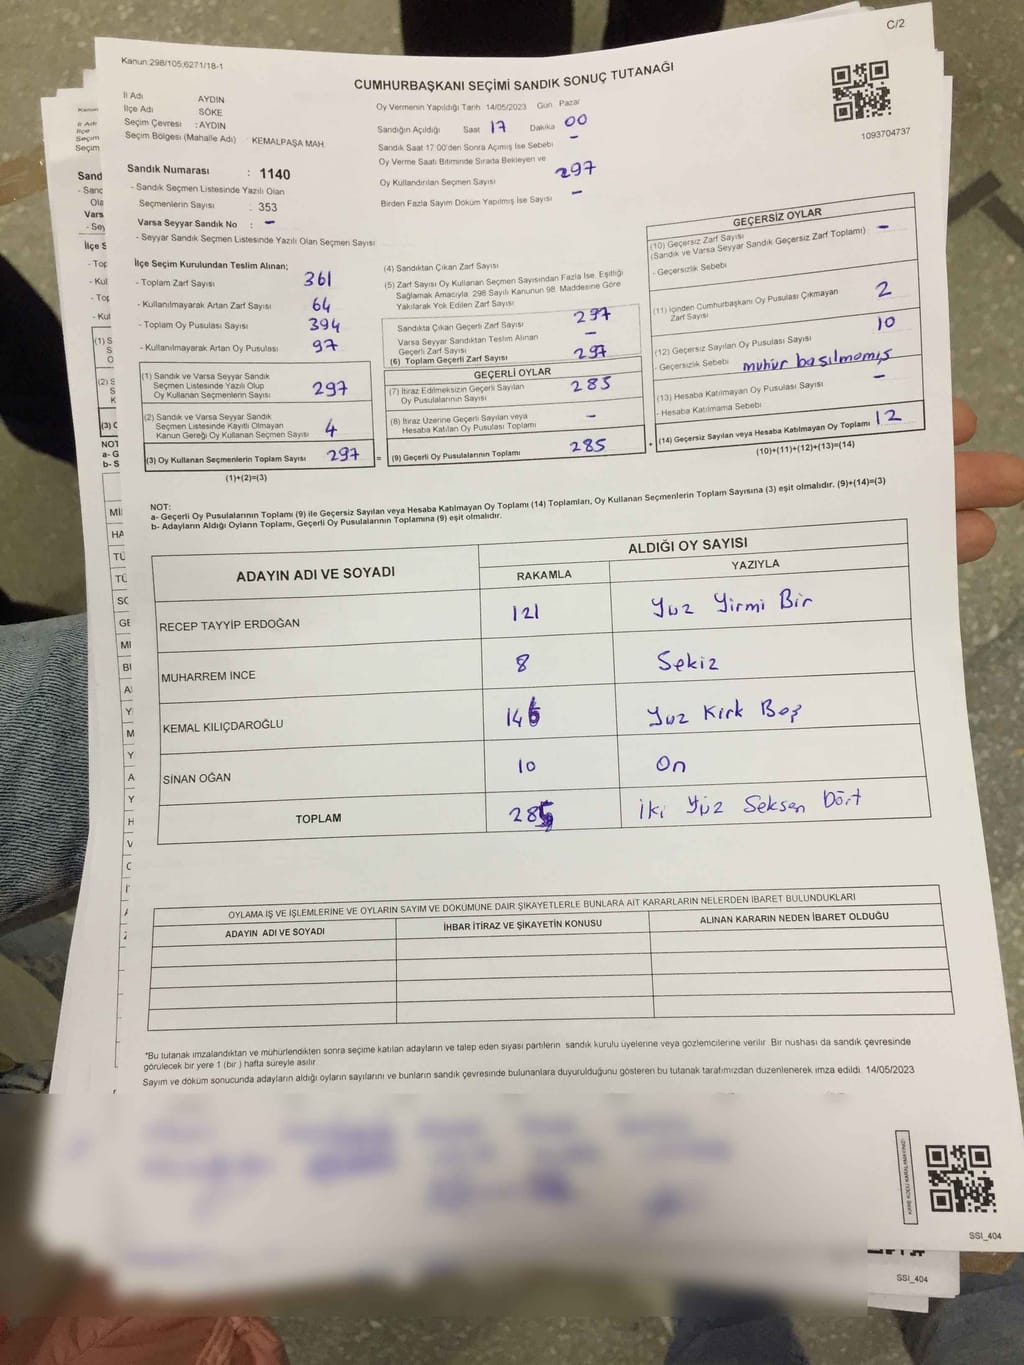 C/2
Kanun:298/105;6271/18-1
CUMHURBAŞKANI SEÇİMİ SANDIK SONUÇ TUTANAĞI
1093704737
İl Adı AYDIN
İlçe Adı SÖKE
Seçim Çevresi : AYDIN
Seçim Bölgesi (Mahalle Adı) : KEMALPAŞA MAH.
Oy Vermenin Yapıldığı Tarih 14/05/2023 Gün Pazar
Sandığın Açıldığı Saat 17 Dakika 00
Sandık Saat 17 00'den Sonra Açımış İse Sebebi -
Oy Verme Saati Bitiminde Sırada Bekleyen ve
Oy Kullandırılan Seçmen Sayısı 297
Birden Fazla Sayım Döküm Yapılmış İse Sayısı -
Sandık Numarası : 1140
- Sandık Seçmen Listesinde Yazılı Olan
Seçmenlerin Sayısı : 353
Varsa Seyyar Sandık No : -
- Seyyar Sandık Seçmen Listesinde Yazılı Olan Seçmen Sayısı
İlçe Seçim Kurulundan Teslim Alınan;
- Toplam Zarf Sayısı 361
- Kullanılmayarak Artan Zarf Sayısı 64
- Toplam Oy Pusulası Sayısı 394
- Kullanılmayarak Artan Oy Pusulası 97
(1) Sandık ve Varsa Seyyar Sandık
Seçmen Listesinde Yazılı Olup
Oy Kullanan Seçmenlerin Sayısı 297
(2) Sandık ve Varsa Seyyar Sandık
Seçmen Listesinde Kayıtlı Olmayan
Kanun Gereği Oy Kullanan Seçmen Sayısı 4
(3) Oy Kullanan Seçmenlerin Toplam Sayısı 297 =
(1)+(2)=(3)
(4) Sandıktan Çıkan Zarf Sayısı
(5) Zarf Sayısı Oy Kullanan Seçmen Sayısından Fazla İse, Eşitliği
Sağlamak Amacıyla; 298 Sayılı Kanunun 98. Maddesine Göre
Yakılarak Yok Edilen Zarf Sayısı
Sandıkta Çıkan Geçerli Zarf Sayısı 297
Varsa Seyyar Sandıktan Teslim Alınan
Geçerli Zarf Sayısı -
(6) Toplam Geçerli Zarf Sayısı 297
GEÇERLİ OYLAR
(7) İtiraz Edilmeksizin Geçerli Sayılan
Oy Pusulalarının Sayısı 285
(8) İtiraz Üzerine Geçerli Sayılan veya
Hesaba Katılan Oy Pusulası Toplamı -
(9) Geçerli Oy Pusulalarının Toplamı 285 +
GEÇERSİZ OYLAR
(10) Geçersiz Zarf Sayısı
(Sandık ve Varsa Seyyar Sandık Geçersiz Zarf Toplamı) -
- Geçersizlik Sebebi
(11) İçinden Cumhurbaşkanı Oy Pusulası Çıkmayan
Zarf Sayısı 2
(12) Geçersiz Sayılan Oy Pusulası Sayısı 10
- Geçersizlik Sebebi muhur basılmamış
(13) Hesaba Katılmayan Oy Pusulası Sayısı -
- Hesaba Katılmama Sebebi
(14) Geçersiz Sayılan veya Hesaba Katılmayan Oy Toplamı 12
(10)+(11)+(12)+(13)=(14)
NOT:
a- Geçerli Oy Pusulalarının Toplamı (9) ile Geçersiz Sayılan veya Hesaba Katılmayan Oy Toplamı (14) Toplamları, Oy Kullanan Seçmenlerin Toplam Sayısına (3) eşit olmalıdır. (9)+(14)=(3)
b- Adayların Aldığı Oyların Toplamı, Geçerli Oy Pusulalarının Toplamına (9) eşit olmalıdır.
ADAYIN ADI VE SOYADI
ALDIĞI OY SAYISI
RAKAMLA YAZIYLA
RECEP TAYYİP ERDOĞAN 121 Yuz Yirmi Bir
MUHARREM İNCE 8 Sekiz
KEMAL KILIÇDAROĞLU Yuz Kırk Beş
SİNAN OĞAN 10 On
TOPLAM İki Yüz Seksen Dört
OYLAMA İŞ VE İŞLEMLERİNE VE OYLARIN SAYIM VE DÖKÜMÜNE DAİR ŞİKAYETLERLE BUNLARA AİT KARARLARIN NELERDEN İBARET BULUNDUKLARI
ADAYIN ADI VE SOYADI İHBAR İTİRAZ VE ŞİKAYETİN KONUSU ALINAN KARARIN NEDEN İBARET OLDUĞU
*Bu tutanak imzalandıktan ve mühürlendikten sonra seçime katılan adayların ve talep eden siyasi partilerin sandık kurulu üyelerine veya gözlemcilerine verilir. Bir nushası da sandık çevresinde
görülecek bir yere 1 (bir ) hafta süreyle asılır.
Sayım ve döküm sonucunda adayların aldığı oyların sayılarını ve bunların sandık çevresinde bulunanlara duyurulduğunu gösteren bu tutanak tarafımızdan düzenlenerek imza edildi. 14/05/2023
SSI_404
SSI_404